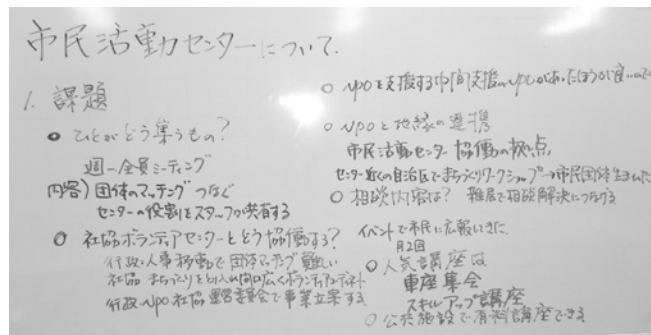 市民活動センターについて.
1. 課題
○ ひとがどう集うもの?
週一全員ミーティング
内容) 団体のマッチング つなぐ
センターの役割をスタッフが共有する
○ 社協ボランティアセンターとどう協働する?
行政・人事移動で団体マッチング難しい
社協 まちづくりと 間口広くボランティアコーディネート
行政 NPO 社協 運営委員会で事業立案する
○ NPOを支援する中間支援のNPOがあったほうが良い
○ NPOと地縁の連携
市民活動センター 協働の拠点,
センター近くの自治区でまちづくりワークショップ→市民団体生まれた
○ 相談内容は? 雑居で相談解決につなげる
イベントで市民に広報いきた.
月2回
○ 人気講座は
車座集会
スキルアップ講座
○ 公共施設で有料講座できる